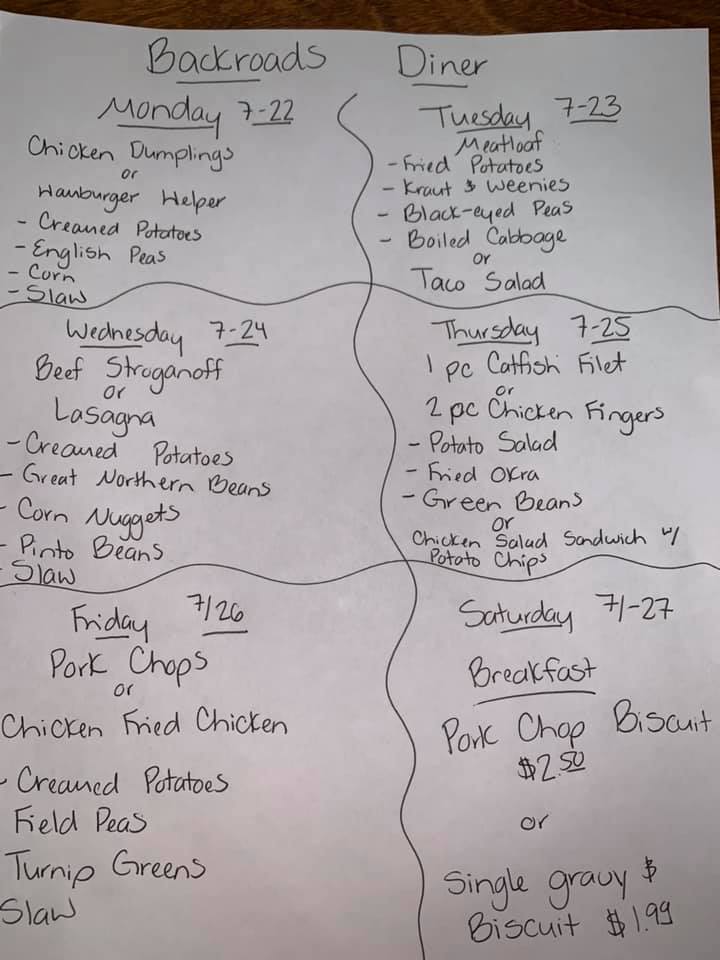 Backroads Diner
Monday 7-22
Chicken Dumplings
or
Hamburger Helper
- Creamed Potatoes
- English Peas
- Corn
- Slaw
Tuesday 7-23
Meatloaf
- Fried Potatoes
- Kraut & Weenies
- Black-eyed Peas
- Boiled Cabbage
or
Taco Salad
Wednesday 7-24
Beef Stroganoff
or
Lasagna
- Creamed Potatoes
- Great Northern Beans
- Corn Nuggets
- Pinto Beans
- Slaw
Thursday 7-25
1 pc Catfish Filet
or
2 pc Chicken Fingers
- Potato Salad
- Fried Okra
- Green Beans
or
Chicken Salad Sandwich w/
Potato Chips
Friday 7/26
Pork Chops
or
Chicken Fried Chicken
- Creamed Potatoes
Field Peas
Turnip Greens
Slaw
Saturday 7/-27
Breakfast
Pork Chop Biscuit
$2.50
or
Single gravy &
Biscuit $1.99